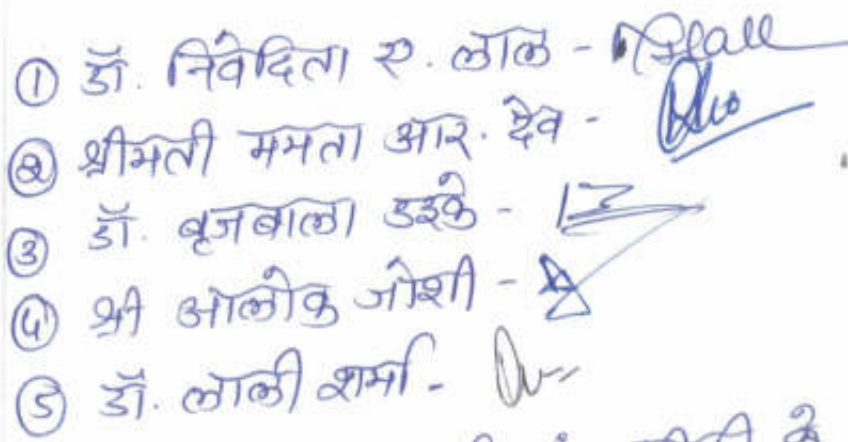 ① डॉ. निवेदिता ए. लाल -
② श्रीमती ममता आर. देव -
③ डॉ. बृजबाला उइके -
④ श्री आलोक जोशी -
⑤ डॉ. लाली शर्मा -
के